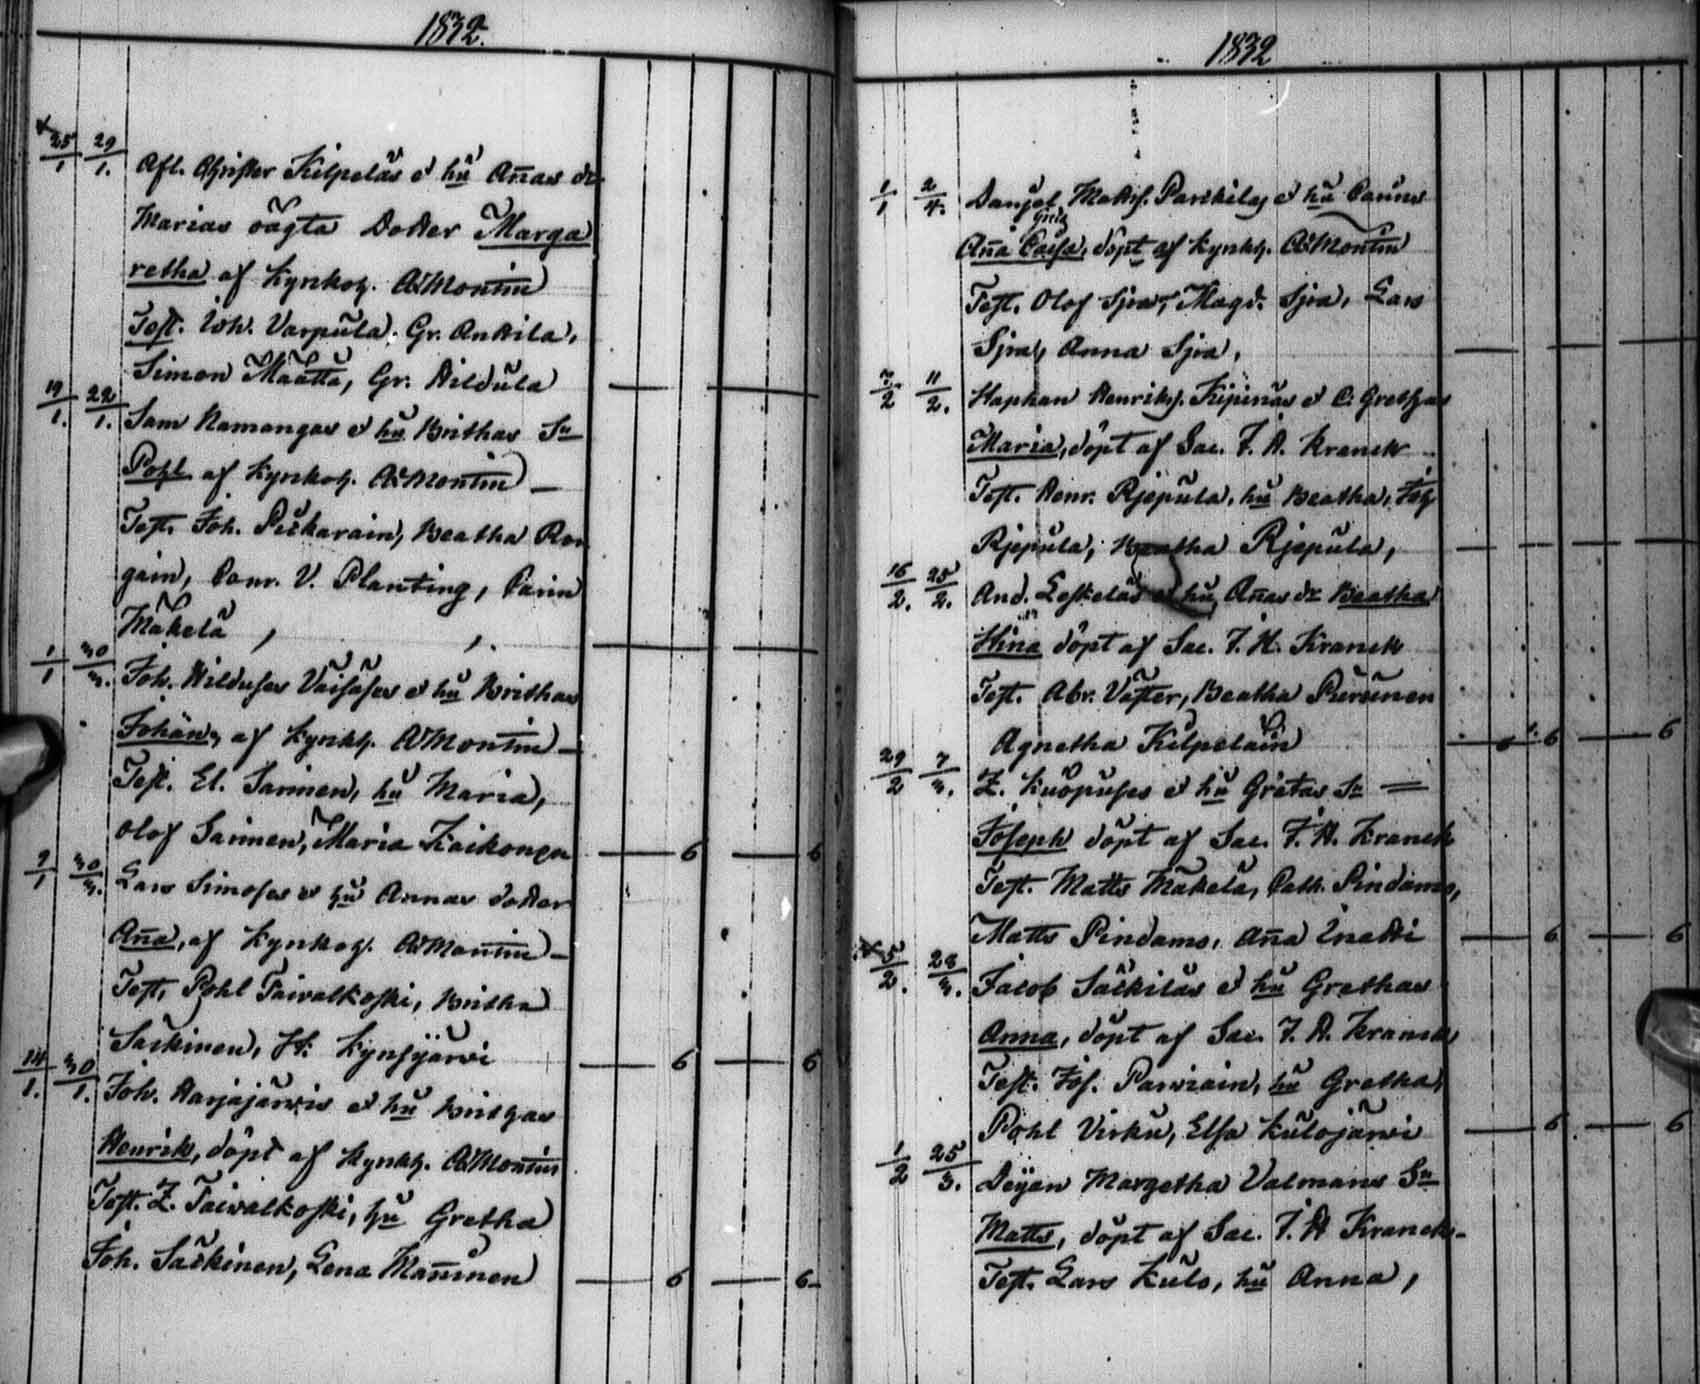 1832.
25/1 29/1. Afl. Christer Kilpeläs & hu Añas dr
Marias oägta Dotter Marga
retha af Kyrkoh. A Montin
Test. Joh. Varpula. Gr. Anttila,
Simon Määtta, Gr.
19/1. 22/1. Sam Ramangas & hu Brithas Sn
Pohl af Kyrkoh. A Montin
Test. Joh. Beatha
gain, V. Planting, Carin
Mäkelä
1/1 30/3. Joh. & hu Brithas
Johan, af Kyrkh. A Montin
Test. El. Sarinen, hu Maria,
Olof Sarinen, Maria 6 6
9/1 30/3. Lars Simoses & hu Annas dotter
Aña, af Kyrkoh. A Montin
Test. Pohl Taivalkoski, Britha
Särkinen, H. 6 6
14/1. 30/1. Joh. Harjajärvis & hu Brithas
Henrik, döpt af Kyrkh. A Montin
Test. Z. Taivalkoski, hu Gretha
Joh. Särkinen, Lena Mañinen 6 6
1832
1/1 2/4. Danjel Matts. Parkilas & hu Carins
Greta
Aña Caisa, döpt af Kyrkh. A Montin
Test. Olof Sjra, Magd. Sjra, Lars
Sjra, Anna Sjra,
7/2 11/2. Staphan Henriks. & C. Grethas
Maria, döpt af Sac. J. H. Kranck
Test. Henr. Rjepula, hu Beatha,
Rjepula, Beatha Rjepula,
16/2. 25/2. And. Leskeläs & hu Añas dr Beatha
Stina döpt af Sac. J. H. Kranck
Test. Abr. Väster, Beatha
Agnetha Kilpeläin 6 6
29/2 7/3. Z. Kuopuses & hu Gretas Sn
Joseph döpt af Sac. J. H. Kranck
Test. Matts Mäkelä, Cath. Pindamo,
Matts Pindamo, Aña 6 6
5/2. 28/3. Jacob Särkiläs & hu Grethas
Anna, döpt af Sac. J. H. Kranck
Test. Jos. Parviain, hu Gretha,
Pohl Virku, Elsa Kulojärvi 6 6
1/2 25/3. Margetha Valmans Sn
Matts, döpt af Sac. J. H Kranck
Test. Lars Kulo, hu Anna,